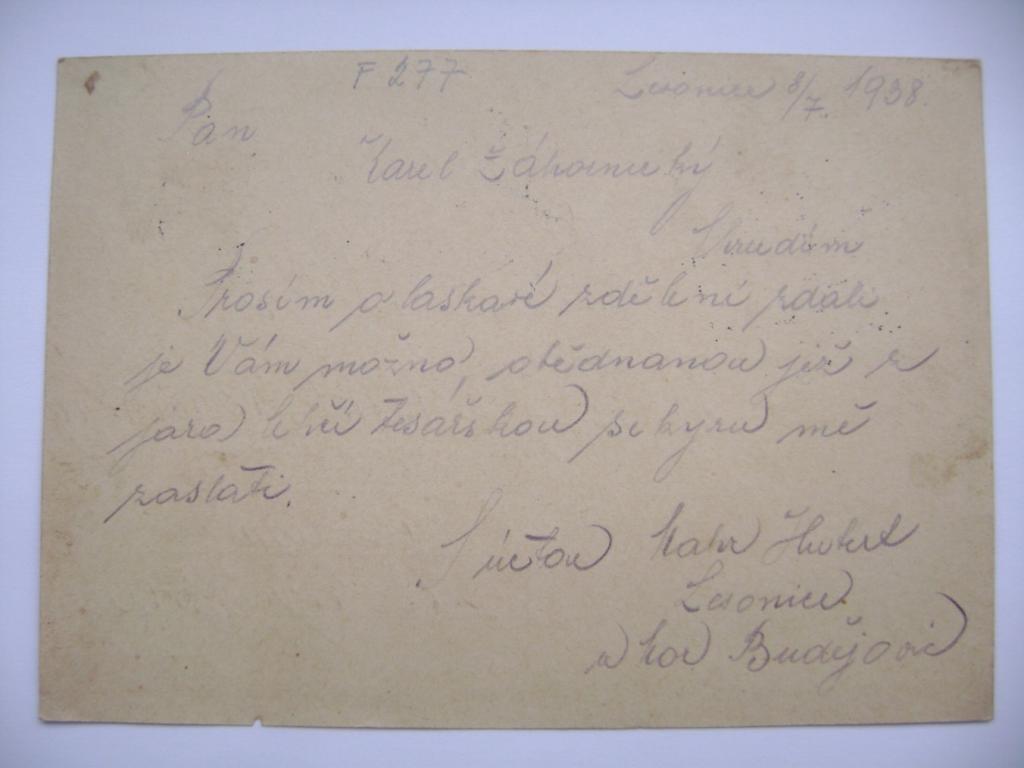 F 277
Lesonice 8/7. 1938.
Pan
Karel Záhornický
Chrudim
Prosím o laskavé zdělení zdali
je Vám možno, obědnanou již z
jara lehčí tesářskou sekyru mě
zaslati.
S úctou Hubert
Lesonice
u Mor Budějovic